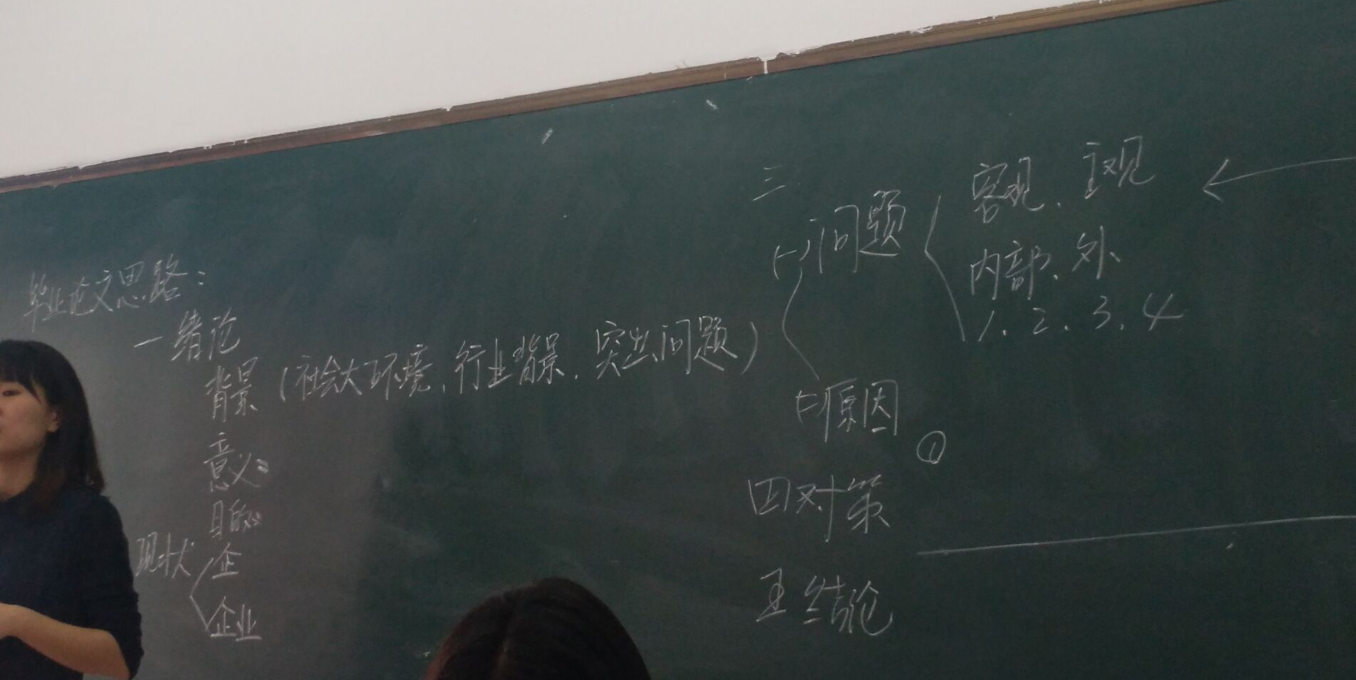 毕业论文思路：
一 绪论
背景（社会大环境、行业背景、突出问题）
意义
目的
现状
企
企业
三
(一)问题
客观、主观
内部、外
1、2、3、4
(二)原因
①
四 对策
五 结论